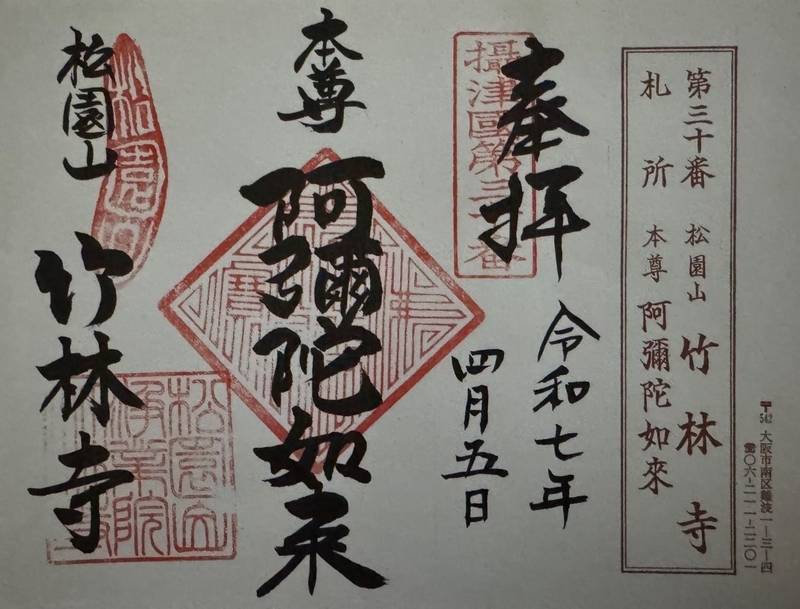 〒542 大阪市南区難波一ー三ー四
☎〇六ー二一一ー二二〇一
第三十番 松園山 竹林寺
札所 本尊 阿彌陀如來
奉拝
攝津國第三十番
令和七年
四月五日
本尊
阿彌陀如来
松園山
竹林寺
松園山